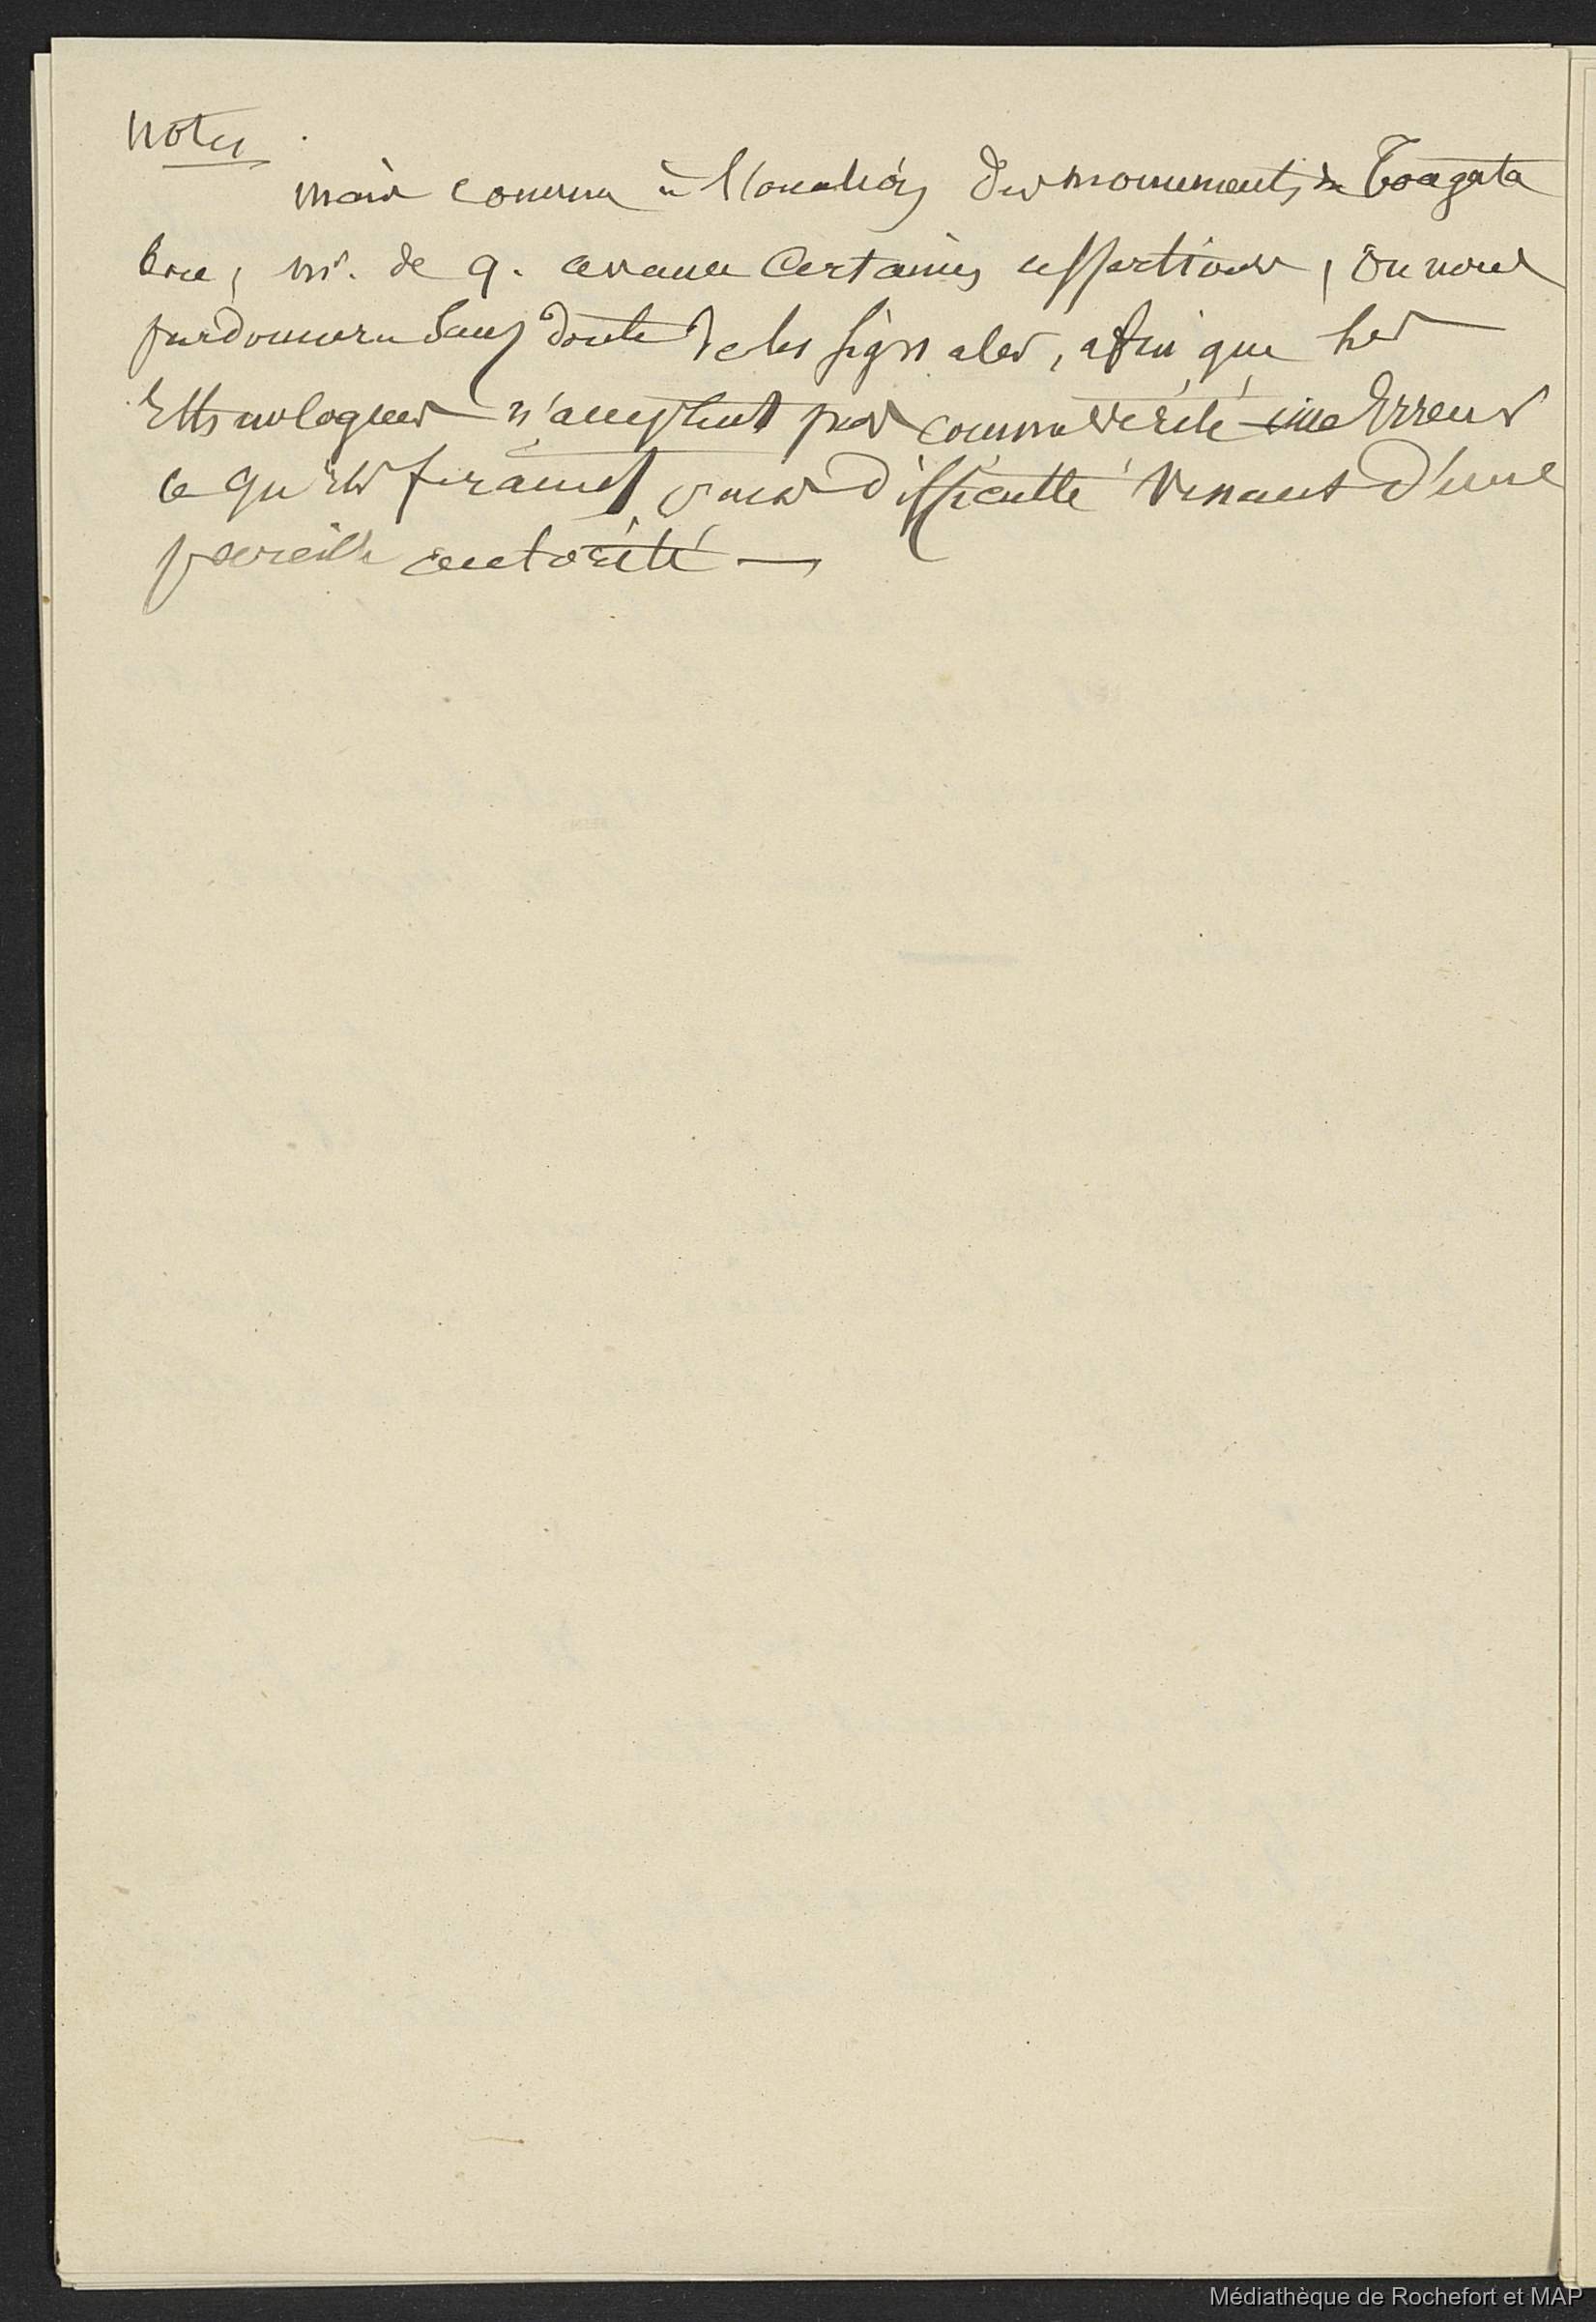 Notes
mais comme à l'occasion des monuments de Tongata
bou, Mr. de Q. avance certaines assertions, on nous
pardonnera sans doute de les signaler, afin que les
Ethnologues n'acceptent pas comme vérité une Erreur
ce qu'ils feraient sans difficulté venant d'une
pareille autorité —
Médiathèque de Rochefort et MAP